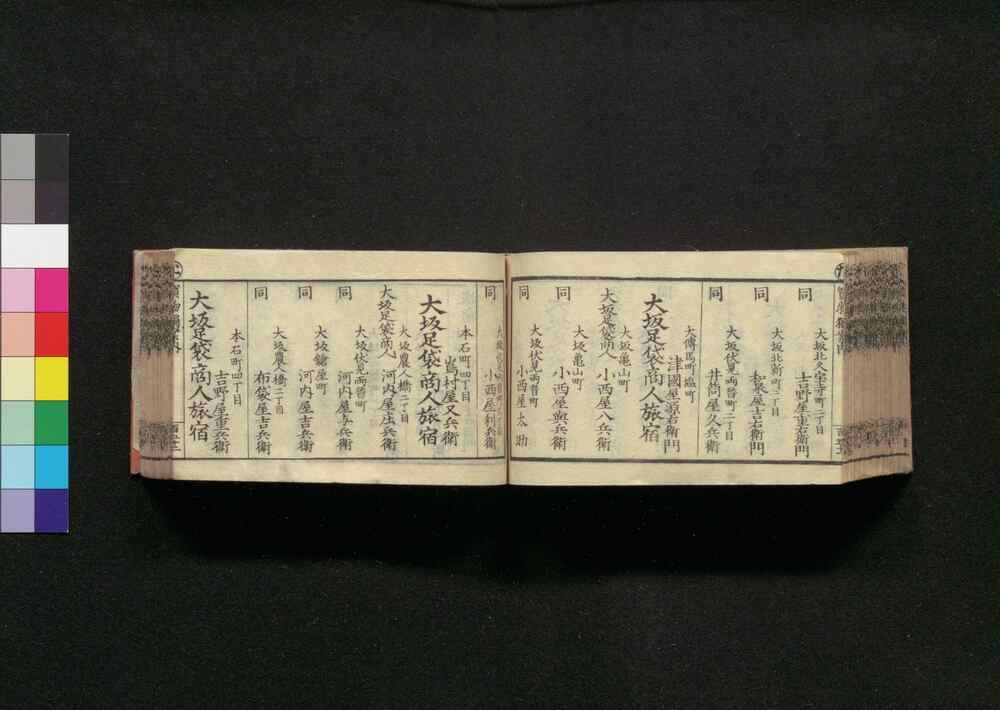 大坂北久宝寺町二丁目
同 吉野屋重右衛門
大坂北新町三丁目
同 和泉屋吉右衛門
大坂伏見両替町二丁目
同 井筒屋久兵衛
大傳馬町塩町
津國屋源右衛門
大坂足袋商人旅宿
大坂亀山町
大坂足袋商人 小西屋八兵衛
大坂亀山町
同 小西屋與兵衛
大坂伏見両替町
同 小西屋太助
同 小西屋利兵衛
本石町四丁目
嶌村屋又兵衛
大坂足袋商人旅宿
大坂農人橋二丁目
大坂足袋商人 河内屋庄兵衛
大坂伏見両替町
同 河内屋与兵衛
大坂鎗屋町
同 河内屋吉兵衛
大坂農人橋二丁目
同 布袋屋吉兵衛
本石町四丁目
吉野屋重兵衛
大坂足袋商人旅宿